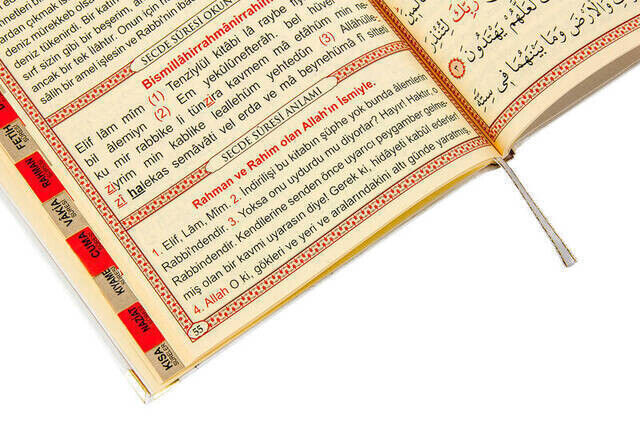 deniz mürekkep olsa
deniz tükenirdi. Bir katını
sırf sizin gibi bir beşerim, an
ancak bir tek ilâhtır. Onun için h
sâlih bir amel işlesin ve Rabbi'nin ibad
SECDE SÛRESİ OKUN
Bismillâhirrahmânirrahîm
Elif lâm mîm (1) Tenzîylül kitâbi lâ raybe fî
bil âlemiyn (2) Em yekûlûnefterâh. bel hü
ku mir rabbike li tünzira kavmem mâ etâhüm min ne
ziyrim min kablike leallehüm yehtedûn (3) Allâhülle
zî halekas semâvâti vel erda ve mâ beynehümâ fî sitteti
SECDE SÛRESİ ANLAMI
Rahman ve Rahim olan Allah'ın ismiyle.
1. Elif, Lâm, Mîm. 2. İndirilişi bu kitabın şüphe yok bunda âlemlerin
Rabbi'ndendir. 3. Yoksa onu uydurdu mu diyorlar? Hayır! Haktır, o
Rabbindendir. Kendilerine senden önce uyarıcı peygamber gelme-
miş olan bir kavmi uyarasın diye! Gerek ki, hidâyeti kabûl ederler!
4. Allah O ki, gökleri ve yeri ve aralarındakini altı günde yaratmış,
55
FETİH
RAHMAN
VAKIA
CUMA
KIYAME
NAZİAT
KISA
SURELER
لَعَلَّهُمْ يَهْتَدُونَ
وَالْاَرْضَ وَمَا بَيْنَهُمَا فٖى سِتَّةِ